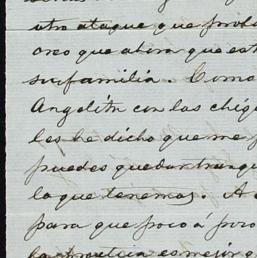 otro ataque que
creo que ahora que est
su familia. Como
Angelita con las chiqu
les he dicho que me p
puedes quedar tranqu
lo que tenemos. A
para que poco á poco
es mejor q